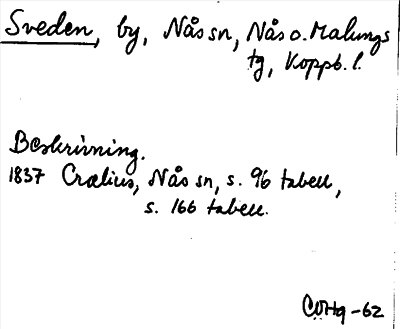 Sveden, by, Nås sn, Nås o. Malungs
tg, Koppb. l.
Beskrivning.
1837 Crælius, Nås sn, s. 96 tabell,
s. 166 tabell.
COHq-62